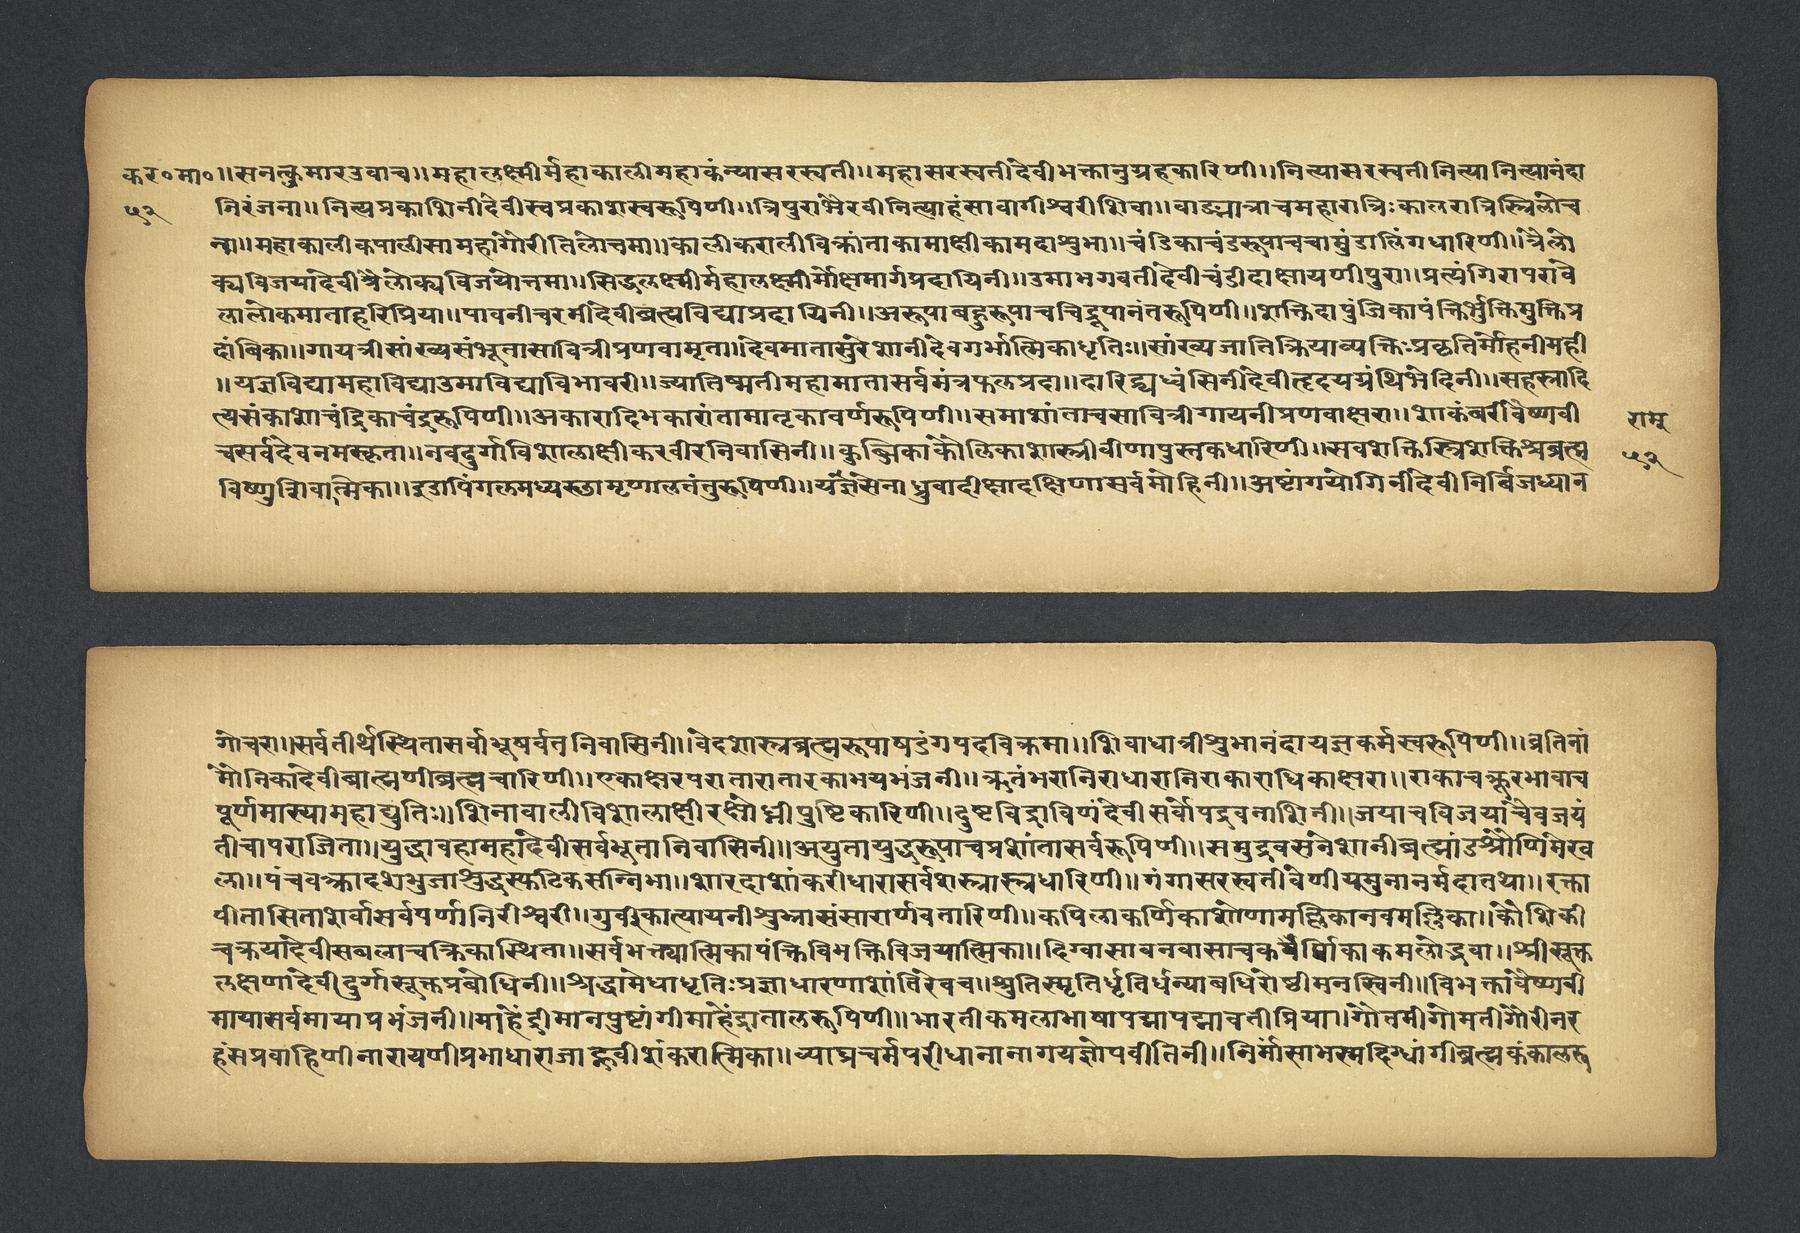 कर॰मा॰॥सनत्कुमारउवाच॥महालक्ष्मीर्महाकालीमहाकंन्यासरस्वती॥महासरस्वतीदेवीभक्तानुग्रहकारिणी॥नित्यासरस्वतीनित्यानित्यानंदा
५२ निरंजना॥नित्यप्रकाशिनीदेवीस्वप्रकाशस्वरूपिणी॥त्रिपुराभैरवीनित्याहंसावागीश्वरीशिवा॥वाङ्मात्राचमहारात्रिःकालरात्रिस्त्रिलोच
ना॥महाकालीकपालीसामहागौरीतिलोचमा॥कालीकरालीविक्रांताकामाक्षीकामदाशुभा॥चंडिकाचंडरूपाचचामुंडालिंगधारिणी॥त्रैलो
क्यविजयादेवीत्रैलोक्यविजयोत्तमा॥सिद्धलक्ष्मीर्महालक्ष्मीर्मोक्षमार्गप्रदायिनी॥उमाभगवतीदेवीचंडीदाक्षायणीपुरा॥प्रत्यंगिरापरावे
लालोकमाताहरिप्रिया॥पावनीचरमीदेवीब्रह्मविद्याप्रदायिनी॥अरूपाबहुरूपाचचिद्रूपानंतरूपिणी॥शक्तिदापुंजिकापंक्तिर्भुक्तिमुक्तिप्र
दांबिका॥गायत्रीसांख्यसंभूतासावित्रीप्रणवामृता॥देवमातासुरेशानीदेवगर्भात्मिकाधृतिः॥सांख्यजातिक्रियाव्यक्तिःप्रकृतिर्मोहनीमही
॥यज्ञविद्यामहाविद्याउमाविद्याविभावरी॥ज्योतिष्मतीमहामातासर्वमंत्रफलप्रदा॥दारिद्र्यध्वंसिनीदेवीहृदयग्रंथिभेदिनी॥सहस्रादि
त्यसंकाशाचंद्रिकाचंद्ररूपिणी॥अकारादिभकारांतामातृकावर्णरूपिणी॥समाशांताचसावित्रीगायनीप्रणवाक्षरा॥शाकंबरीवैष्णवी राम्
चसर्वदेवनमस्कृता॥नवदुर्गाविशालाक्षीकरवीरनिवासिनी॥कुब्जिकाकौलिकाशास्त्रीवीणापुस्तकधारिणी॥सर्वशक्तिस्त्रिशक्तिश्चब्रह्म ५२
विष्णुशिवात्मिका॥इडापिंगलमध्यस्छामृणालतंतुरूपिणी॥यज्ञसेनाध्रुवादीक्षादक्षिणासर्वमोहिनी॥अष्टांगयोगिनीदेवीनिर्बिजध्यान
गोचरा॥सर्वतीर्थस्थितासर्वाभूषर्वतनिवासिनी॥वेदशास्त्रब्रह्मरूपाषडंगपदविक्रमा॥शिवाधात्रीशुभानंदायज्ञकर्मस्वरूपिणी॥व्रतिनां
मोनिकादेवीब्राह्मणीब्रह्मचारिणी॥एकाक्षरपरातारातारकाभयभंजनी॥ऋतंभरानिराधारानिराकाराधिकाक्षरा॥राकाचक्रूरभावाच
पूर्णमास्यामहाद्युतिः॥शिनावालीविशालाक्षीरक्षोघ्नीपुष्टिकारिणी॥दुष्टविद्राविणंदेवीसर्वोपद्रवनाशिनी॥जयाचविजयाचैवजयं
तीचापराजिता॥युद्धावहामहादेवीसर्वभूतानिवासिनी॥अयुतायुद्धरूपाचप्रशांतासर्वरूपिणी॥समुद्रवसनेशानीब्रह्मांडश्रोणिमेख
ला॥पंचवक्त्रादशभुजाशुद्धस्फटिकसन्निभा॥शारदाशांकरीधारासर्वशस्त्रास्त्रधारिणी॥गंगासरस्वतीवेणीयमुनानर्मदातथा॥रक्ता
पीतासिताशर्वासर्वपर्णानिरीश्वरी॥गुर्वीकात्यायनीशुभ्रासंसारार्णवतारिणी॥कपिलाकर्णिकाशोणामल्लिकानवमल्लिका॥कौशिकी
चक्रयादेवीसबलाचक्रिकास्थिता॥सर्वभक्त्यात्मिकापंक्तिविभक्तिविजयात्मिका॥दिग्वासावनवासाचककमलोद्भवा॥श्रीसूक्त
लक्षणादेवीदुर्गासूक्तप्रबोधिनी॥श्रद्धामेधाधृतिःप्रज्ञाधारणाशांतिरेवच॥श्रुतिस्मृतिर्धृतिर्धन्याबधिरोष्ठीमनस्विनी॥विभक्तावैष्णवी
मायासर्वमायाप्रभंजनी॥माहेंद्रीमानपुष्टांगीमाहेंद्रातालरूपिणी॥भारतीकमलाभाषापद्मापद्मावतीप्रिया॥गौतमीगोमतीगौरीनर
हंसप्रवाहिणीनारायणीप्रभाधाराजाह्नवीशंकरात्मिका॥व्याघ्रचर्मपरीधानानागयज्ञोपवीतिनी॥निर्मांसाभस्मदिग्धांगीब्रह्मकंकालरू